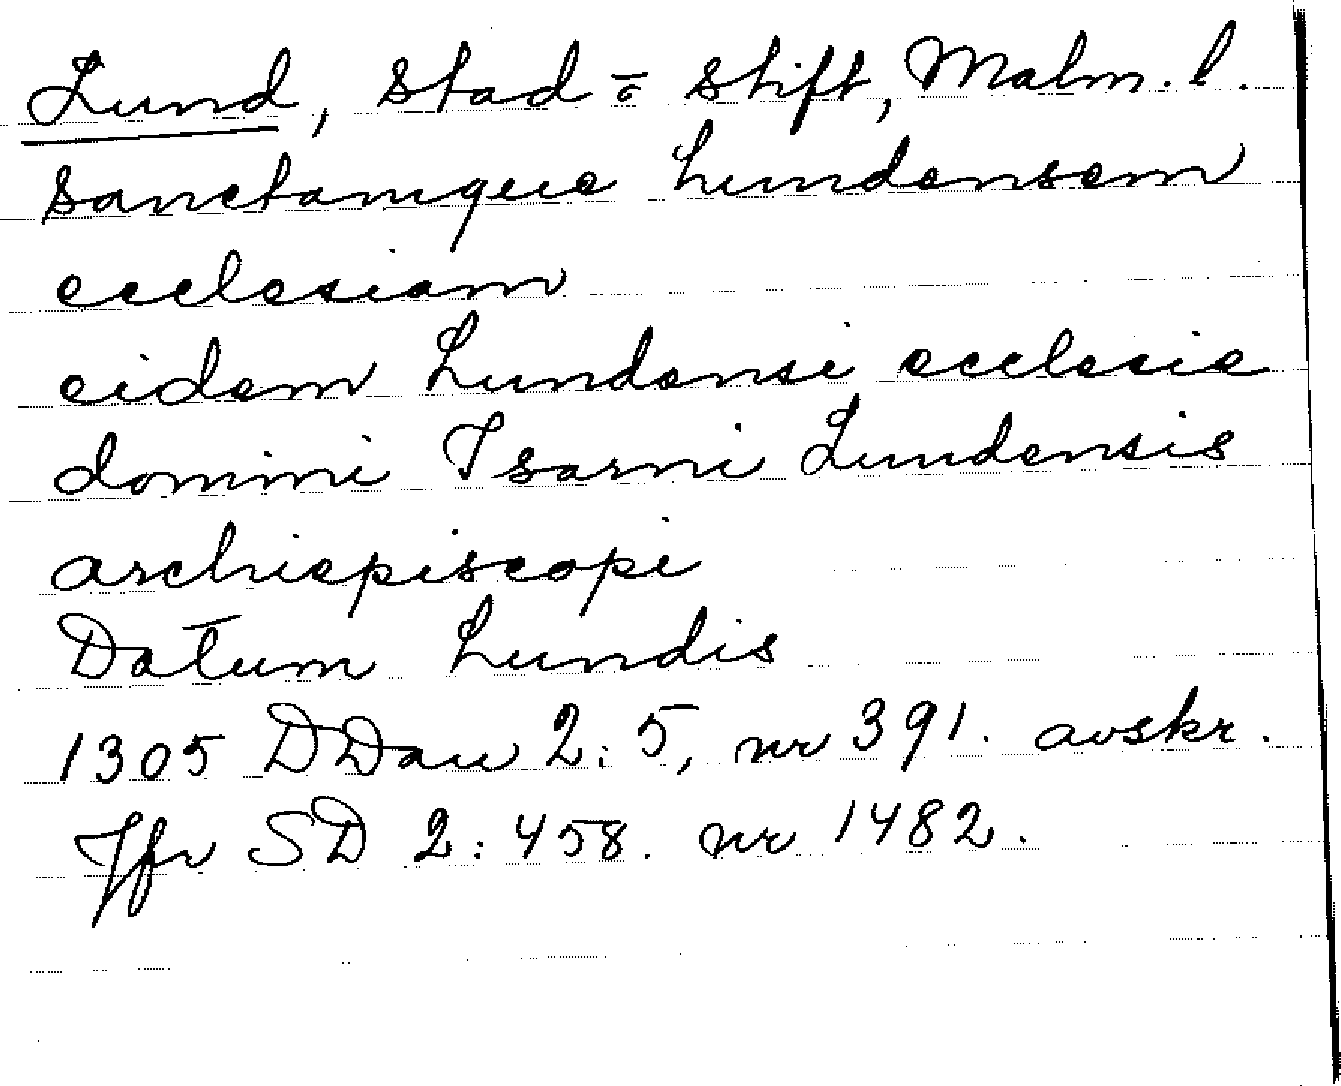 Lund, stad o stift, Malm. l.
Sanctamque Lundensem
ecclesiam
eidem Lundensi ecclesie
domini Isarni Lundensis
archiepiscopi
Datum Lundis
1305 DDan 2:5, nr 391. avskr.
Jfr SD 2:458. nr 1482.